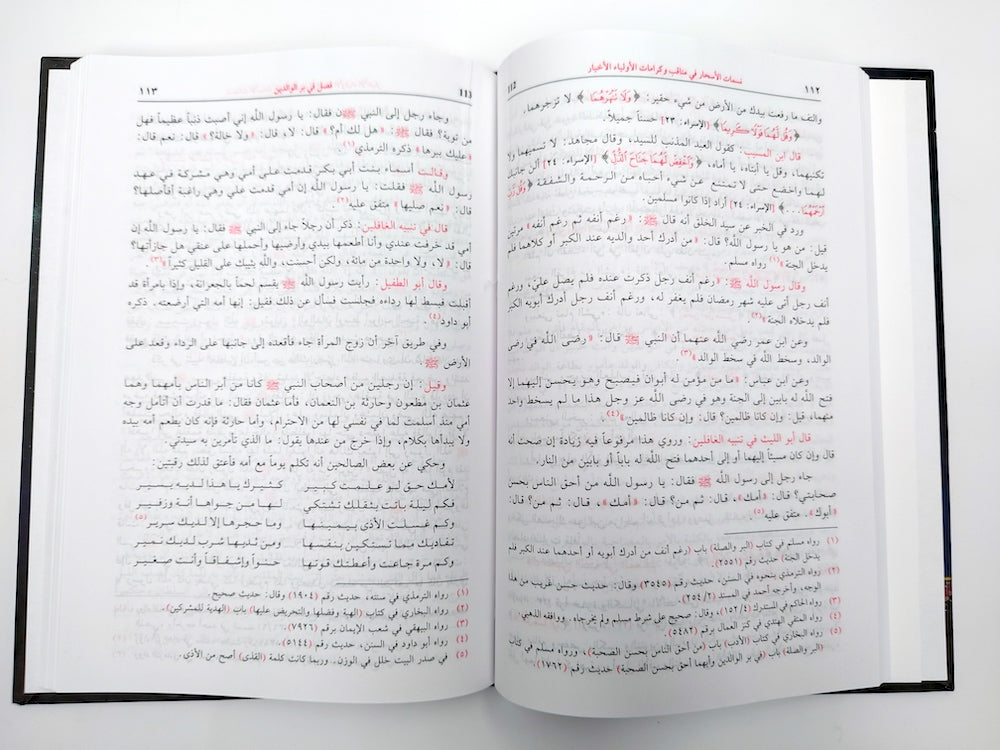 ١١٢
نسمات الأسحار في مناقب وكرامات الأولياء الأخيار
والتف ما رفعت بيدك من الأرض من شيء حقير: ﴿وَلَا نَنْهَرْهُمَا﴾ لا تزجرهما.
﴿وَقُل لَّهُمَا قَوْلًا كَرِيمًا﴾ [الإسراء: ٢٣] حسناً جميلاً.
قال ابن المسيب: كقول العبد المذنب للسيد، وقال مجاهد: لا تسميهما ولا
تكنيهما، وقل يا أبتاه، يا أماه، ﴿وَاخْفِضْ لَهُمَا جَنَاحَ الذُّلِّ﴾ [الإسراء: ٢٤] ألن جانبك
لهما واخضع حتى لا تمتنع عن شيء أحباه من الرحمة والشفقة ﴿وَقُل رَّبِّ
ارْحَمْهُمَا...﴾ [الإسراء: ٢٤] أراد إذا كانوا مسلمين.
ورد في الخبر عن سيد الخلق أنه قال ﷺ: «رغم أنفه ثم رغم أنفه» مرتين
قيل: من هو يا رسول الله؟ قال: «من أدرك أحد والديه عند الكبر أو كلاهما فلم
يدخل الجنة»(١) رواه مسلم.
وقال رسول الله ﷺ: «رغم أنف رجل ذكرت عنده فلم يصل عليَّ، ورغم
أنف رجل أتى عليه شهر رمضان فلم يغفر له، ورغم أنف رجل أدرك أبويه الكبر
فلم يدخلاه الجنة»(٢).
وعن ابن عمر رضي الله عنهما أن النبي ﷺ قال: «رضى الله في رضى
الوالد، وسخط الله في سخط الوالد»(٣)
وعن ابن عباس: «ما من مؤمن له أبوان فيصبح وهو يحسن إليهما إلا
فتح الله له بابين إلى الجنة وهو في رضى الله عز وجل هذا ما لم يسخط واحد
منهما، قيل: وإن كانا ظالمين؟ قال: وإن كانا ظالمين»(٤).
قال أبو الليث في تنبيه الغافلين: وروي هذا مرفوعاً فيه زيادة إن صحت أنه
قال وإن كان مسيئاً إليهما أو إلى أحدهما فتح الله له باباً أو بابين من النار.
جاء رجل إلى رسول الله ﷺ فقال: يا رسول الله من أحق الناس بحسن
صحابتي؟ قال: «أمك»، قال: ثم من؟ قال: «أمك»، قال: ثم من؟ قال:
«أبوك». متفق عليه(٥).
(١) رواه مسلم في كتاب (البر والصلة) باب (رغم أنف من أدرك أبويه أو أحدهما عند الكبر فلم
يدخل الجنة) حديث رقم (٢٥٥١).
(٢) رواه الترمذي بنحوه في السنن، حديث رقم (٣٥٤٥) وقال: حديث حسن غريب من هذا
الوجه، وأخرجه أحمد في المسند (٢/٢٥٤).
(٣) رواه الحاكم في المستدرك (٤/١٥٢)، وقال: صحيح على شرط مسلم ولم يخرجاه. ووافقه الذهبي.
(٤) رواه المتقي الهندي في كنز العمال برقم (٥٤٨٢).
(٥) رواه البخاري في كتاب (الأدب) باب (من أحق الناس بحسن الصحبة)، ورواه مسلم في كتاب
(البر والصلة) باب (في بر الوالدين وأيهما أحق بحسن الصحبة) حديث رقم (١٧٦٢)
١١٣
فصل في بر الوالدين
وجاء رجل إلى النبي ﷺ فقال: يا رسول الله إني أصبت ذنباً عظيماً فهل
من توبة؟ فقال ﷺ: «هل لك أم؟» قال: لا، قال: «ولا خالة؟» قال: نعم قال:
«عليك ببرها» ذكره الترمذي(١).
وقالت أسماء بنت أبي بكر قدمت على أمي وهي مشركة في عهد
رسول الله ﷺ فقلت: يا رسول الله إن أمي قدمت على وهي راغبة أفأصلها؟
قال: «نعم صليها» متفق عليه(٢).
قال في تنبيه الغافلين: ذكر أن رجلاً جاء إلى النبي ﷺ فقال: يا رسول الله إن
أمي قد خرفت عندي وأنا أطعمها بيدي وأرضيها وأحملها على عنقي هل جازأتها؟
قال: «لا، ولا واحدة من مائة، ولكن أحسنت، والله يثيبك على القليل كثيراً»(٣).
وقال أبو الطفيل: رأيت رسول الله ﷺ يقسم لحماً بالجعرانة، وإذا بامرأة قد
أقبلت فبسط لها رداءه فجلست فسأل عن ذلك فقيل: إنها أمه التي أرضعته. ذكره
أبو داود(٤).
وفي طريق آخر أن زوج المرأة جاء فأقعده إلى جانبها على الرداء وقعد على
الأرض ﷺ
وقيل: إن رجلين من أصحاب النبي ﷺ كانا من أبر الناس بأمهما وهما
عثمان بن مظعون وحارثة بن النعمان، فأما عثمان فقال: ما قدرت أن أتأمل وجه
أمي منذ أسلمت لما في نفسي لها من الاحترام، وأما حارثة فإنه كان يطعم أمه بيده
ولا يبدأها بكلام، وإذا خرج من عندها يقول: ما الذي تأمرين به سيدتي.
وحكي عن بعض الصالحين أنه تكلم يوماً مع أمه فأعتق لذلك رقبتين:
لأمك حق لو علمت كبير كثيرك يا هذا لديه يسير
فكم ليلة باتت بثقلك تشتكي لها من جواها أنة وزفير
وكم غسلت الأذى بيمينها وما حجرها إلا لديك سرير(٥)
تفاديك مما تستكين بنفسها ومن ثديها شرب لديك نمير
وكم مرة جاعت وأعطتك قوتها حنواً وإشفاقاً وأنت صغير
(١) رواه الترمذي في سننه، حديث رقم (١٩٠٤) وقال: حديث صحيح.
(٢) رواه البخاري في كتاب (الهبة وفضلها والتحريض عليها) باب (الهدية للمشركين).
(٣) رواه البيهقي في شعب الإيمان برقم (٧٩٢٦).
(٤) رواه أبو داود في السنن، حديث رقم (٥١٤٤).
(٥) في صدر البيت خلل في الوزن. وربما كانت كلمة (القذى) أصح من الأذى.